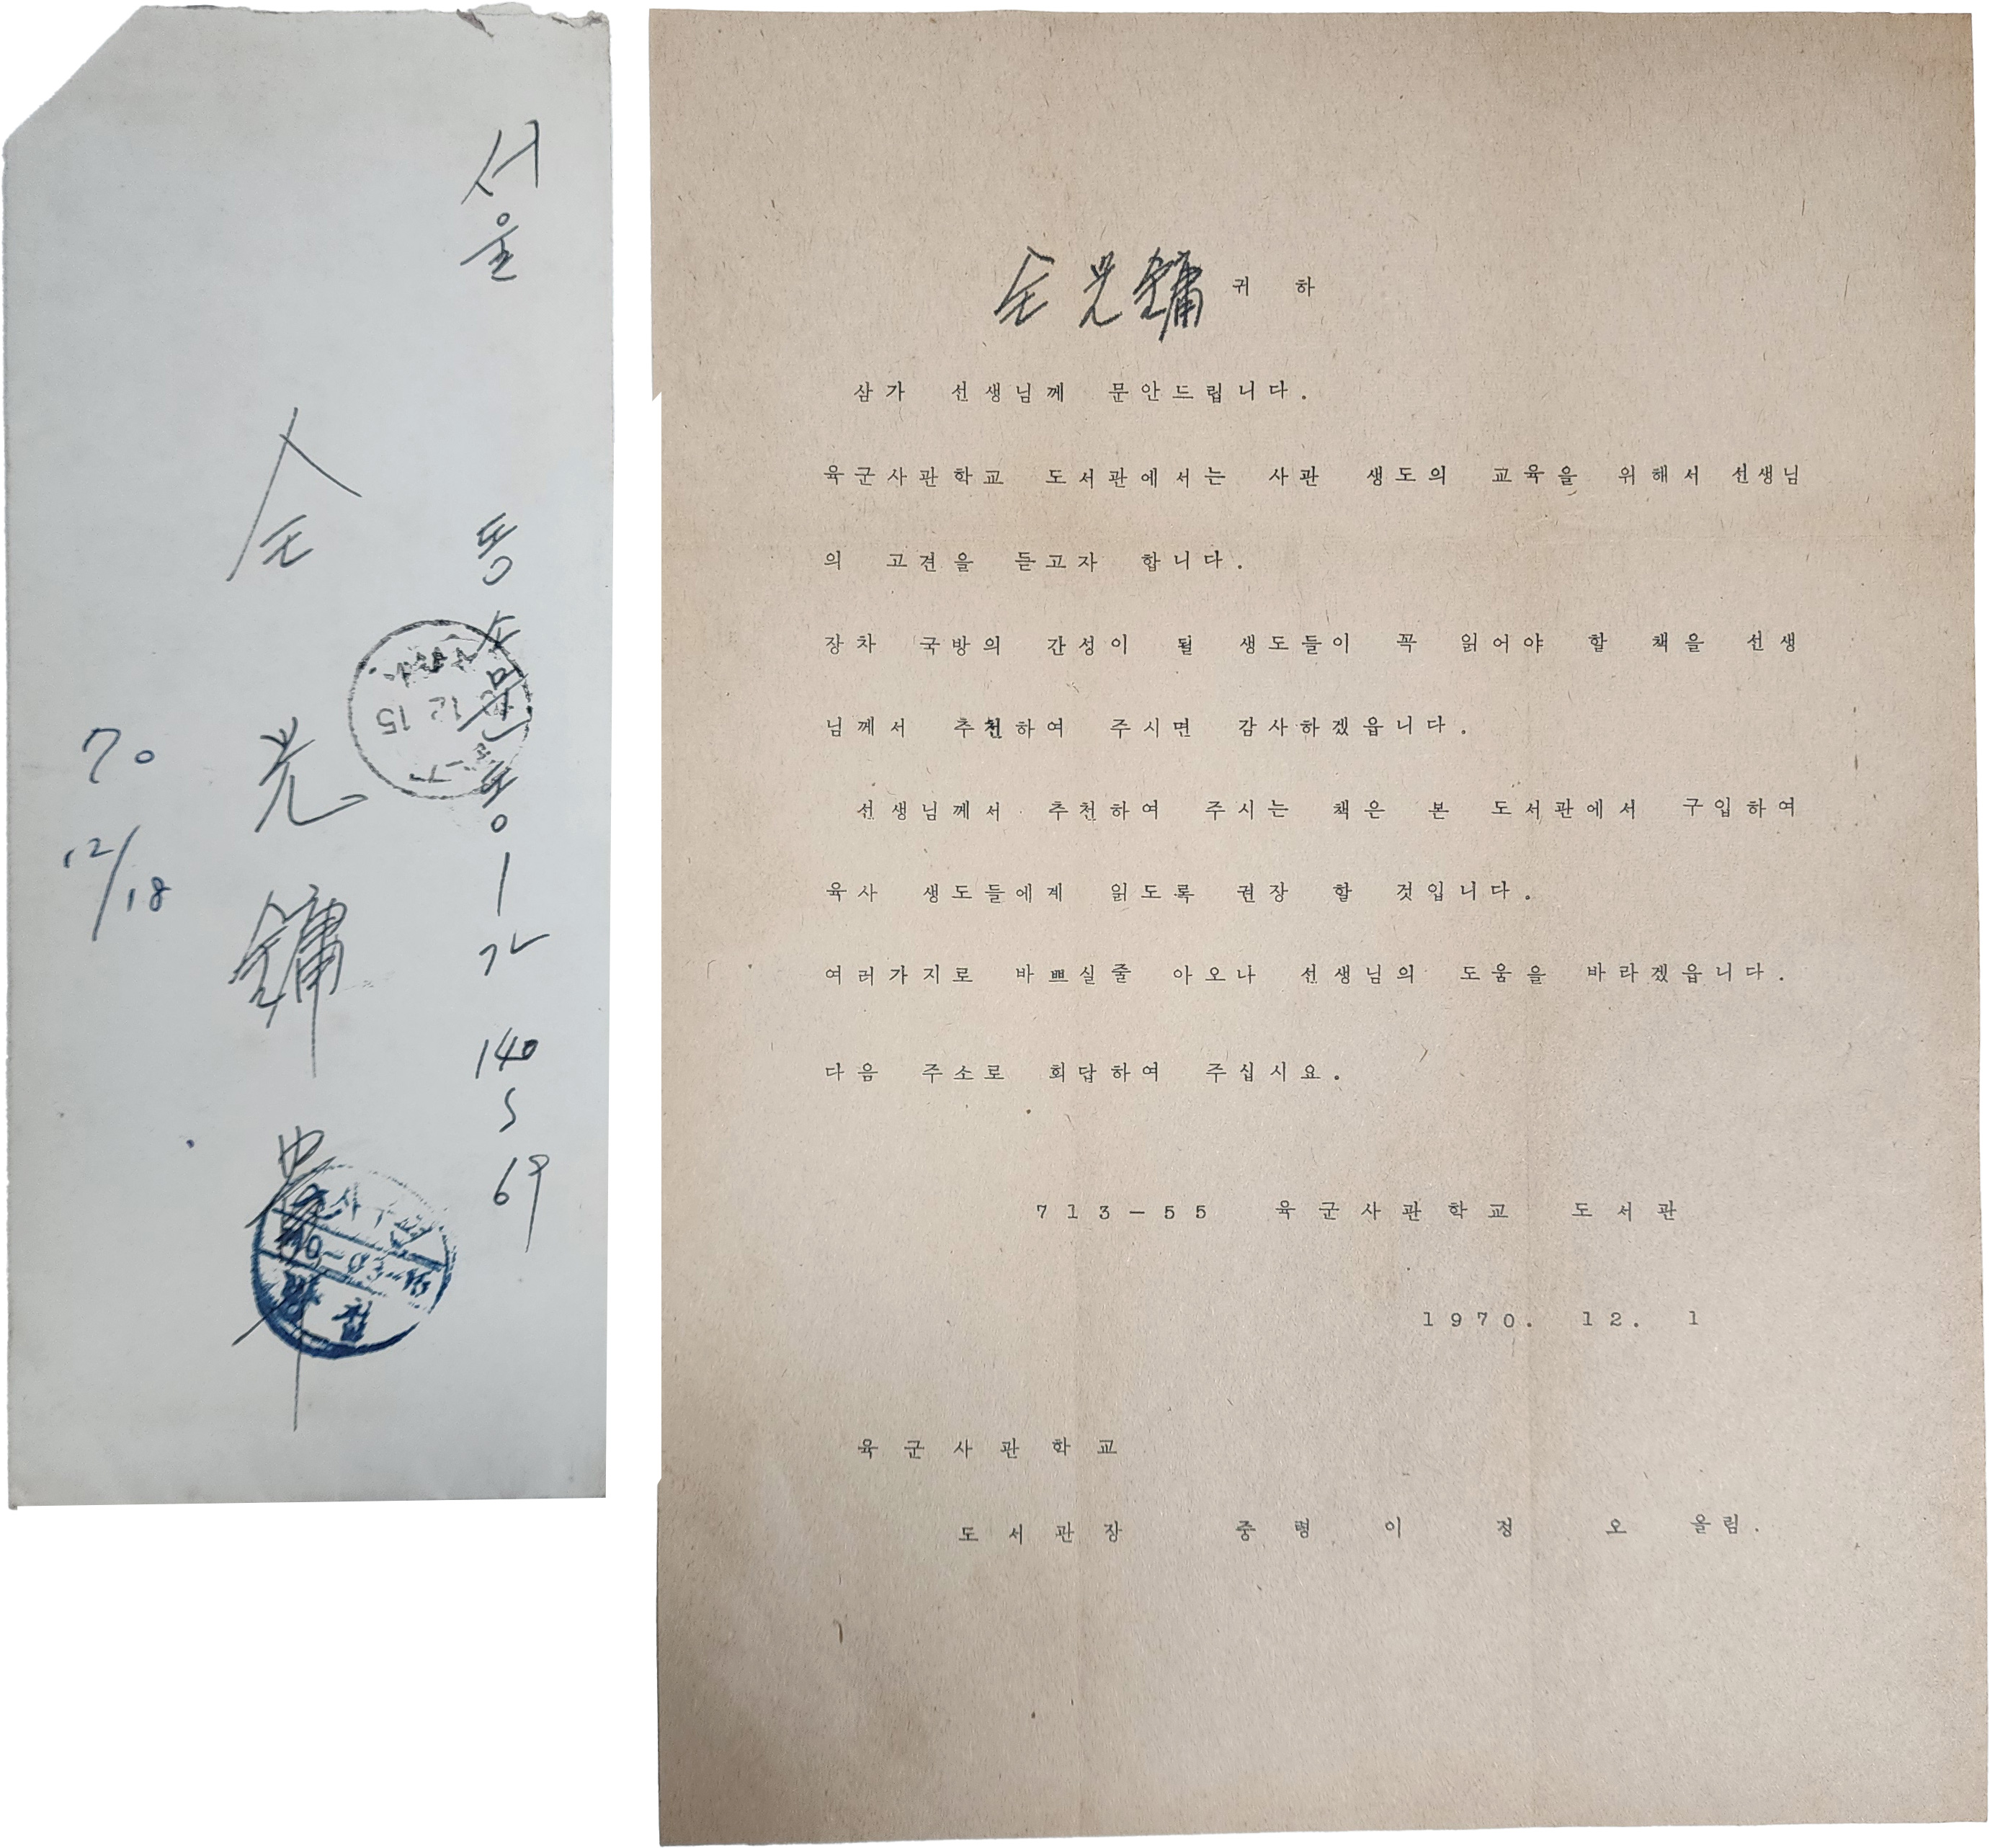 서울
동소문동 1가 140의 69
全光鏞 貴下
70
12/18
12 15
방첩
全光鏞 귀하
삼가 선생님께 문안드립니다.
육군사관학교 도서관에서는 사관 생도의 교육을 위해서 선생님
의 고견을 듣고자 합니다.
장차 국방의 간성이 될 생도들이 꼭 읽어야 할 책을 선생
님께서 추천하여 주시면 감사하겠읍니다.
선생님께서 추천하여 주시는 책은 본 도서관에서 구입하여
육사 생도들에게 읽도록 권장 할 것입니다.
여러가지로 바쁘실줄 아오나 선생님의 도움을 바라겠읍니다.
다음 주소로 회답하여 주십시요.
713-55 육군사관학교 도서관
1970. 12. 1
육군사관학교
도서관장 중령 이 정 오 올림.